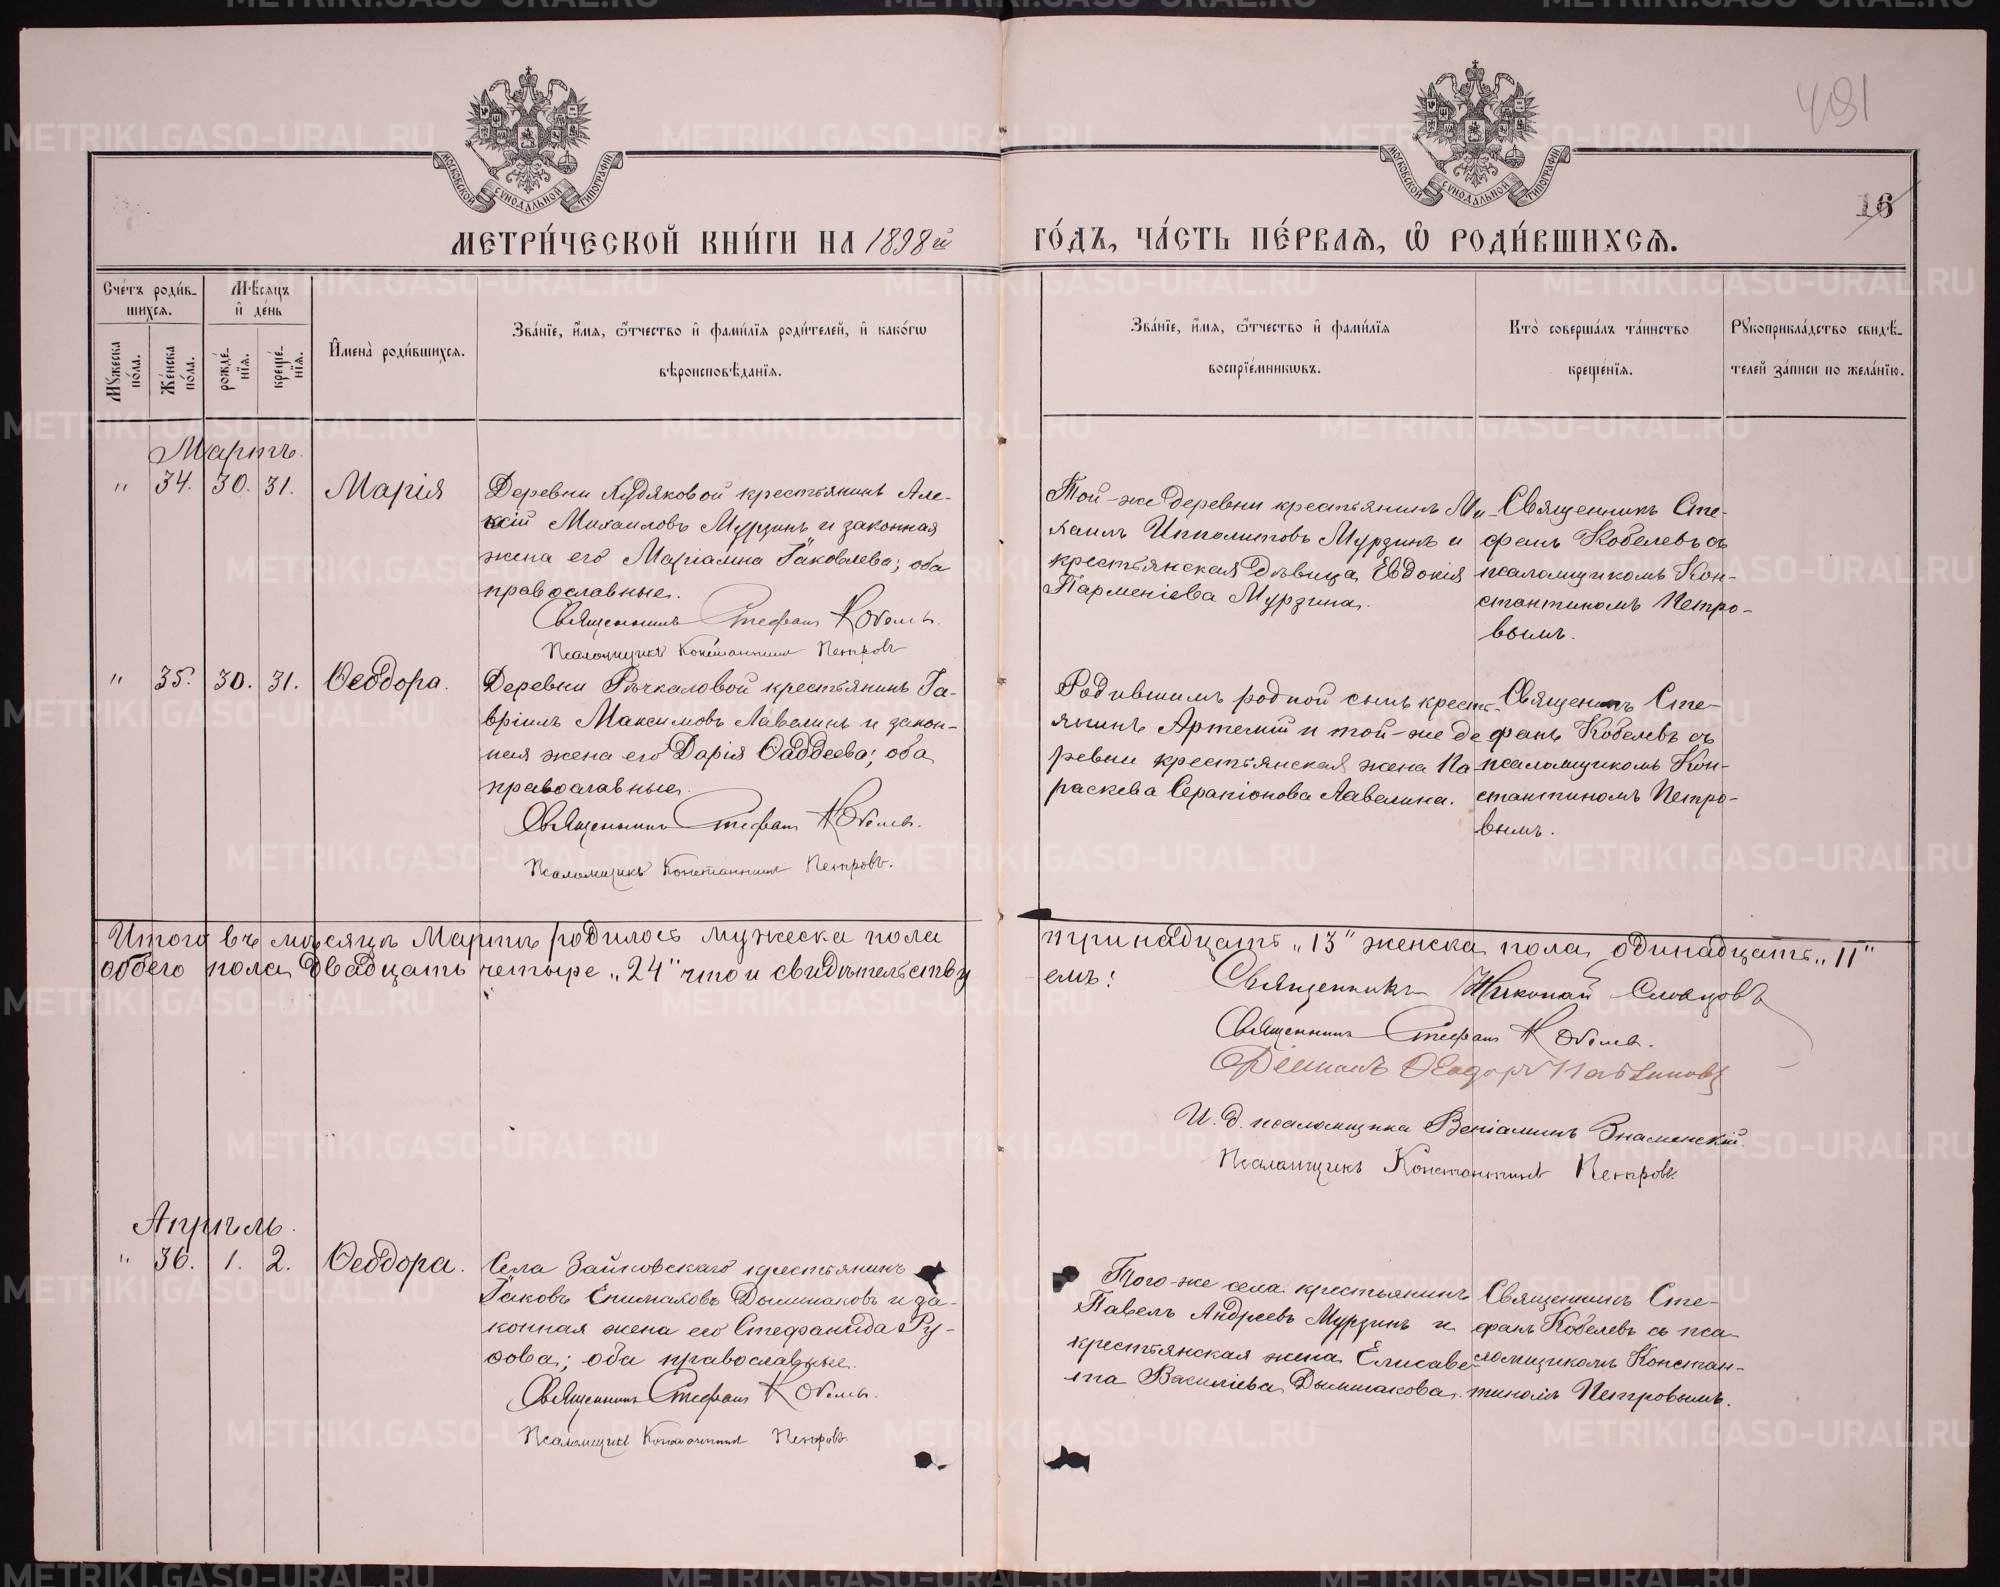 491
16
МОСКОВСКОЙ СѴНОДАЛЬНОЙ ТИПОГРАФІИ
МОСКОВСКОЙ СѴНОДАЛЬНОЙ ТИПОГРАФІИ
МЕТРИ́ЧЕСКОЙ КНИ́ГИ НА 1898й
ГО́ДЪ, ЧА́СТЬ ПЕ́РВАѦ, Ѡ҆ РОДИ́ВШИХСѦ.
Сче́тъ роди́в-
шихсѧ.
Мѣ́сѧцъ
и҆ де́нь
И҆мена̀ роди́вшихсѧ.
Зва́нїе, и҆́мѧ, ѻ҆́тчество и҆ фами́лїѧ роди́телей, и҆ како́гѡ
вѣроисповѣ́данїѧ.
Мꙋ́жеска по́ла.
Же́нска по́ла.
рожде́нїѧ.
креще́нїѧ.
Зва́нїе, и҆́мѧ, ѻ҆́тчество и҆ фами́лїѧ
воспрїе́мникѡвъ.
Кто̀ соверша́лъ та́инство
креще́нїѧ.
Рꙋкоприкла́дство свидѣ́-
телей за́писи по жела́нїю.
Мартъ.
" 34. 30. 31. Марія
Деревни Худяковой крестьянинъ Але-
ксій Михаиловъ Мурзинъ и законная
жена его Маріамна Іаковлева; оба
православные.
Священникъ Стефанъ Кобелевъ.
Псаломщикъ Константинъ Петровъ
Той-же деревни крестьянинъ Ми-
хаилъ Ипполитовъ Мурзинъ и
крестьянская дѣвица Евдокія
Парменіева Мурзина.
Священникъ Сте-
фанъ Кобелевъ съ
псаломщикомъ Кон-
стантиномъ Петро-
вымъ.
" 35. 30. 31. Ѳеодора.
Деревни Рѣчкаловой крестьянинъ Га-
вріилъ Максимовъ Лавелинъ и закон-
ная жена его Дарія Ѳаддеева; оба
православные.
Священникъ Стефанъ Кобелевъ.
Псаломщикъ Константинъ Петровъ.
Родившимъ родной сынъ кресть-
янинъ Артемій и той-же де
ревни крестьянская жена Па-
раскева Серапіонова Лавелина.
Священникъ Сте-
фанъ Кобелевъ съ
псаломщикомъ Кон-
стантиномъ Петро-
вымъ.
Итого въ мѣсяцѣ Мартѣ родилось мужеска пола тринадцать „13" женска пола одинадцать „11"
обоего пола двадцать четыре „24" что и свидѣтельству
емъ:
Священникъ Николай Словцовъ
Священникъ Стефанъ Кобелевъ.
Діаконъ Ѳеодоръ
И. д. псаломщика Веніаминъ Знаменскій.
Псаломщикъ Константинъ Петровъ.
Апрѣль.
" 36. 1. 2. Ѳеодора.
Села Зайковскаго крестьянинъ
Іаковъ Епимаховъ Дымшаковъ и за-
конная жена его Стефанида Ру-
фова; оба православные.
Священникъ Стефанъ Кобелевъ.
Псаломщикъ Константинъ Петровъ.
Того-же села крестьянинъ
Павелъ Андреевъ Мурзинъ и
крестьянская жена Елисаве-
та Василіева Дымшакова.
Священникъ Сте-
фанъ Кобелевъ съ пса-
ломщикомъ Констан-
тиномъ Петровымъ.